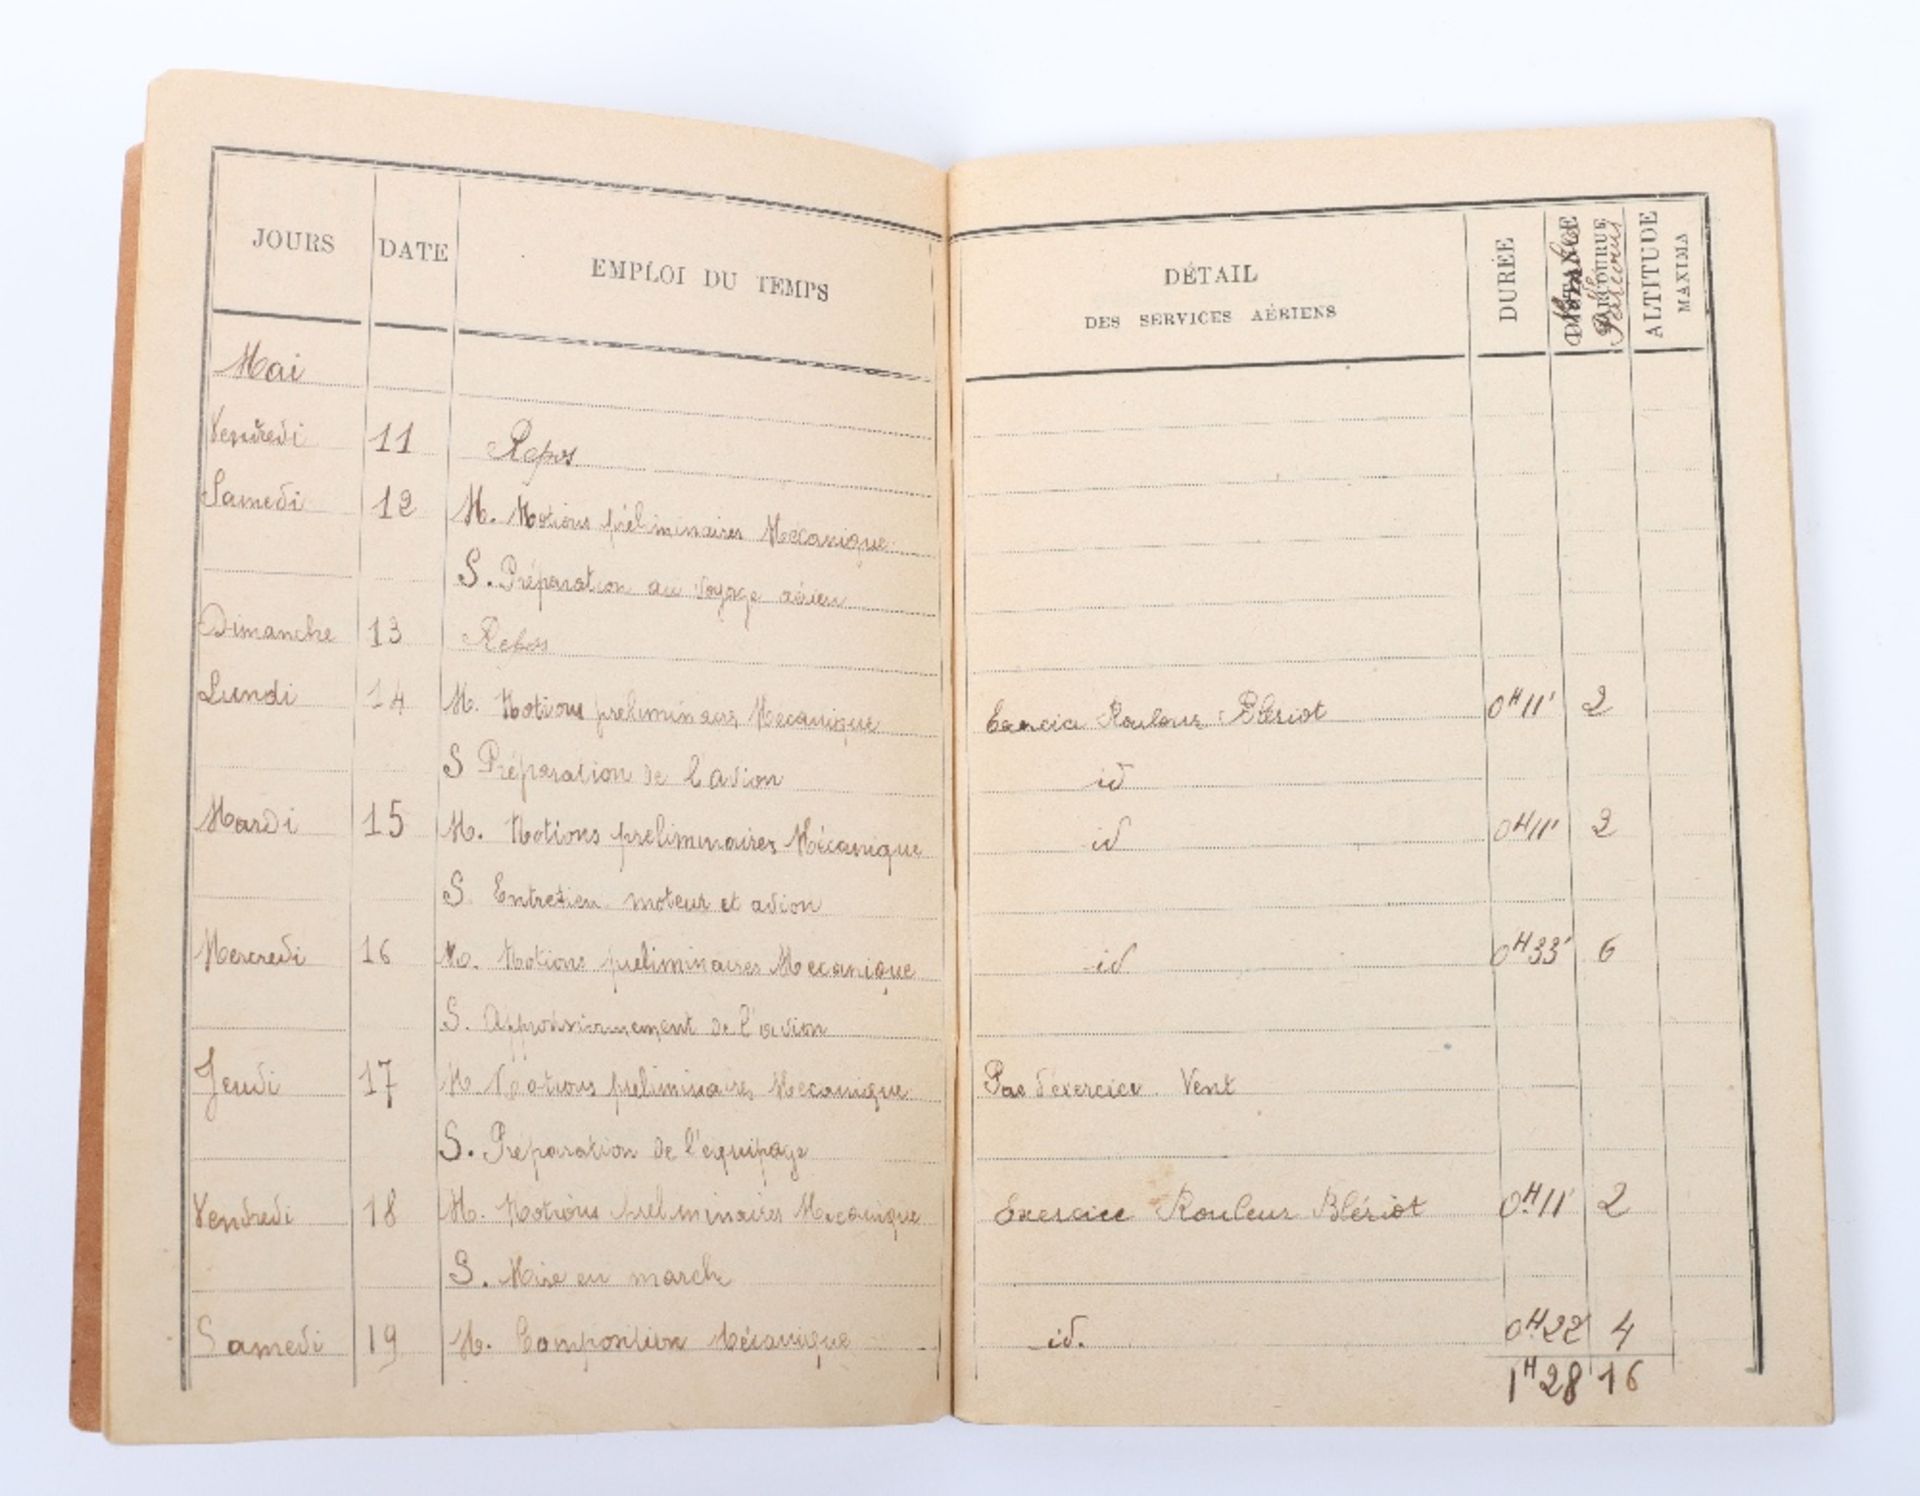 JOURS DATE EMPLOI DU TEMPS
Mai
Vendredi 11 Repos
Samedi 12 M. Notions préliminaires Mécanique
S. Préparation au voyage aérien
Dimanche 13 Repos
Lundi 14 M. Notions preliminaires Mecanique
S Préparation de l'avion
Mardi 15 M. Notions preliminaires Mécanique
S. Entretien moteur et avion
Mercredi 16 M. Notions preliminaires Mecanique
S. Approvisionnement de l'avion
Jeudi 17 M. Notions preliminaires Mecanique
S. Préparation de l'equipage
Vendredi 18 M. Notions preliminaires Mecanique
S. Mise en marche
Samedi 19 M. Composition Mécanique
DÉTAIL
DES SERVICES AÉRIENS
DURÉE DISTANCE PARCOURUE ALTITUDE MAXIMA
Nombre Parcours
Exercice Rouleur Blériot 0H11' 2
id
id 0H11' 2
id 0H33' 6
Pas d'exercice. Vent
Exercice Rouleur Blériot 0H11' 2
id. 0H22 4
1H28 16